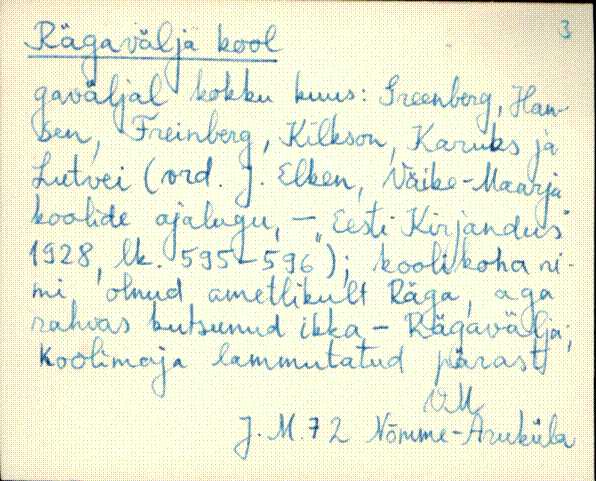 3
Rägavälja kool
gaväljal kokku kuus: Greenberg, Han-
sen, Freinberg, Kilkson, Karuks ja
Lutvei (vrd. J. Elken, Väike-Maarja
koolide ajalugu, – "Eesti Kirjandus"
1928, lk. 595–596); koolikoha ni-
mi olnud ametlikult Räga, aga
rahvas kutsunud ikka – Rägavälja;
Koolimaja lammutatud pärast
J. M. 72 Nõmme-Aruküla